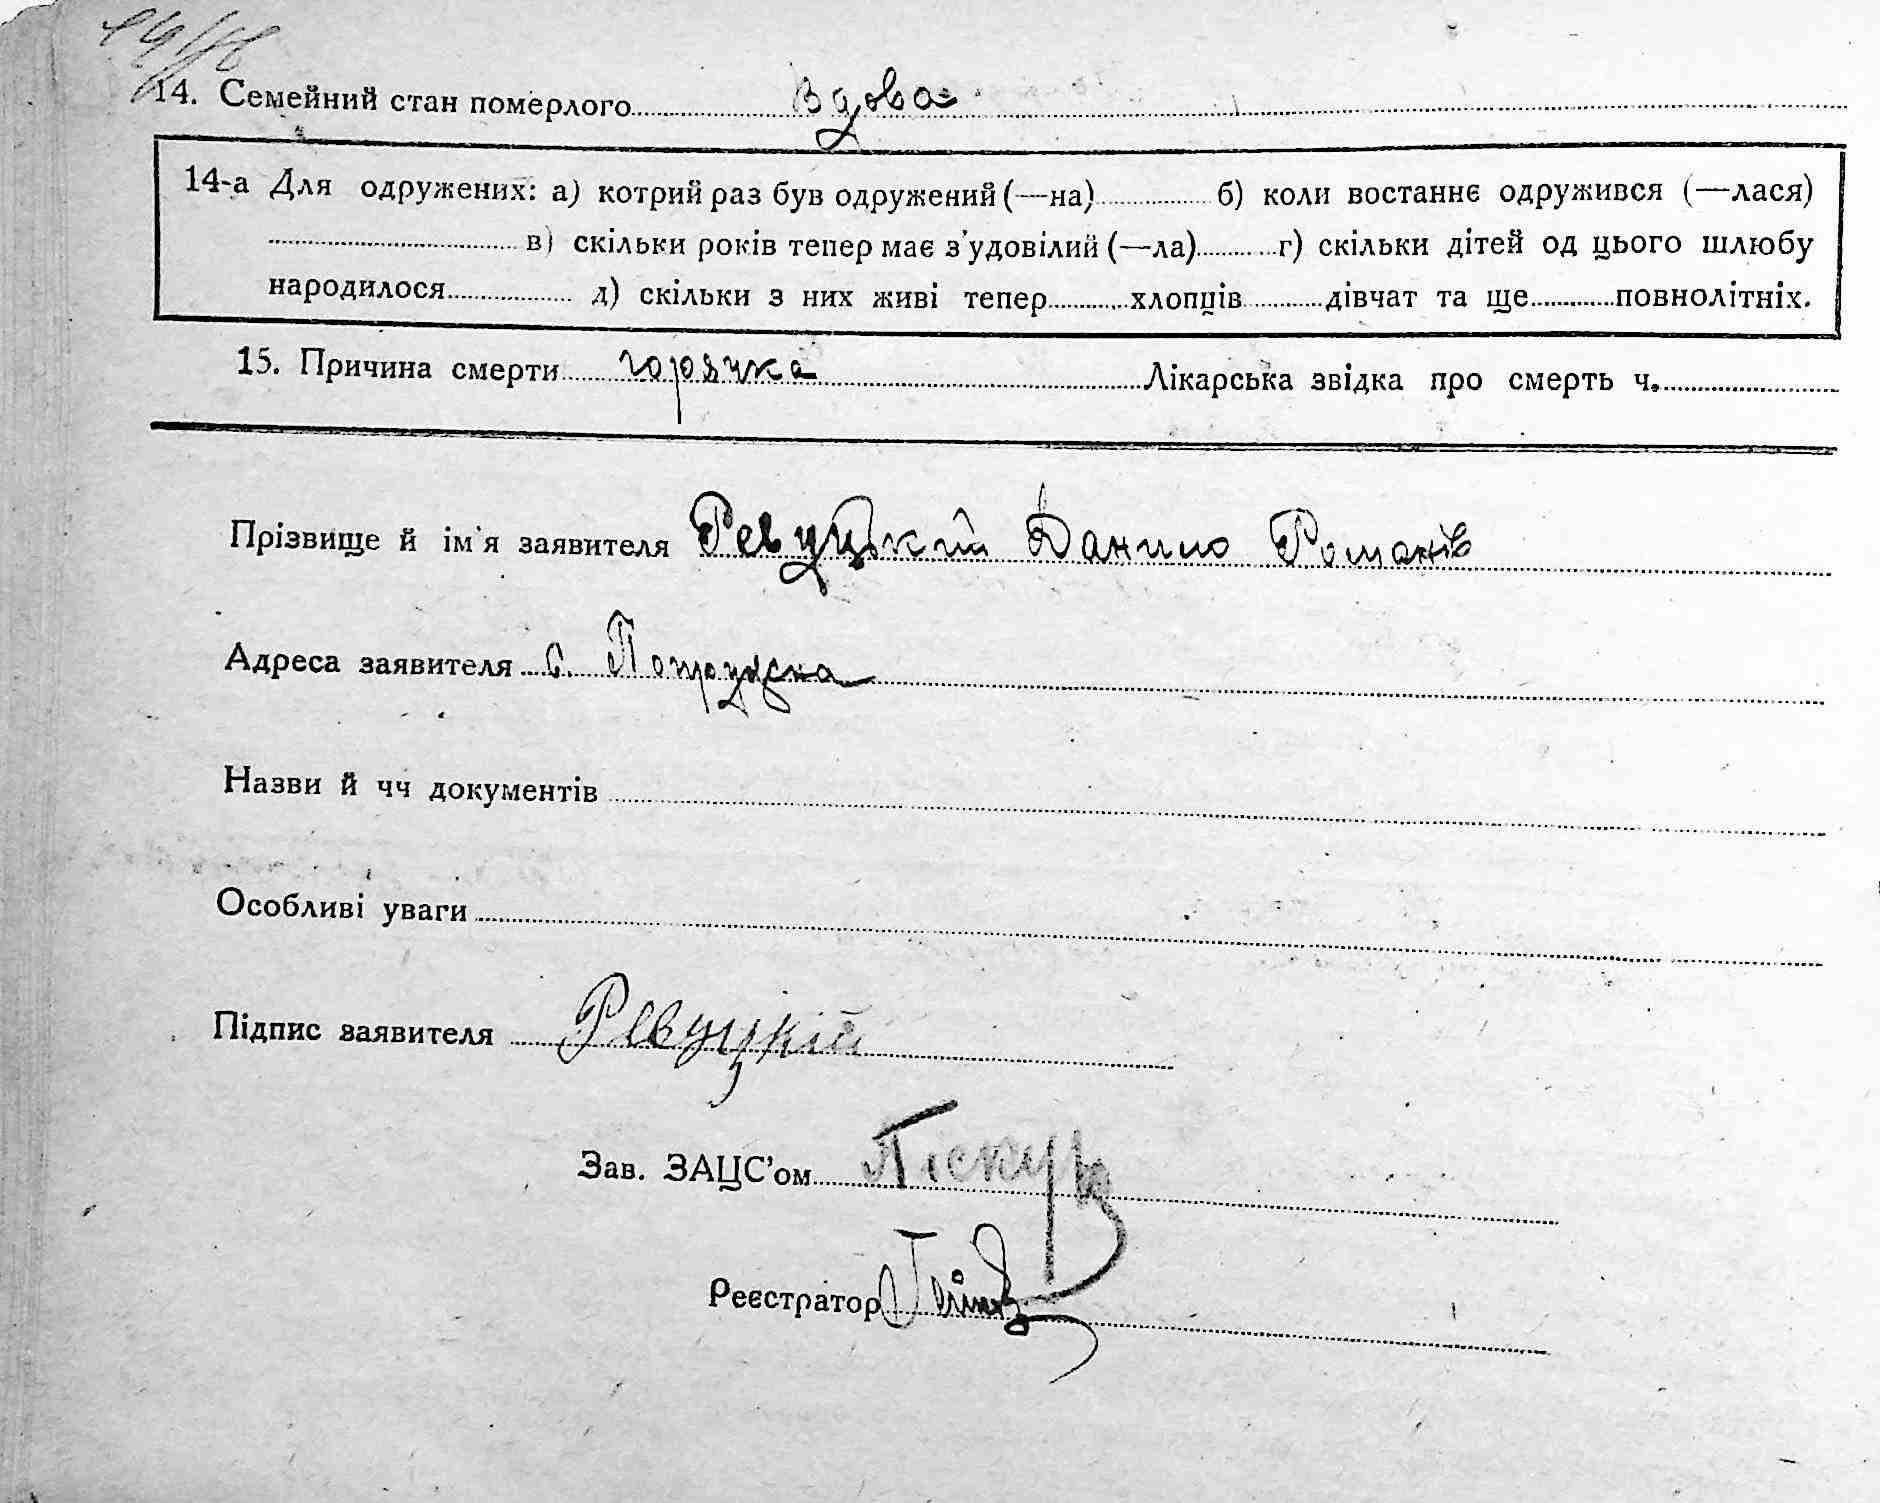 14. Семейний стан померлого вдова
14-а Для одружених: а) котрий раз був одружений (—на) б) коли востаннє одружився (—лася)
в) скільки років тепер має з’удовілий (—ла) г) скільки дітей од цього шлюбу
народилося д) скільки з них живі тепер хлопців дівчат та ще повнолітніх.
15. Причина смерти горячка Лікарська звідка про смерть ч.
Прізвище й ім'я заявителя Ревуцький Данило Романів
Адреса заявителя с.
Назви й чч документів
Особливі уваги
Підпис заявителя Ревуцкій
Зав. ЗАЦС’ом
Реєстратор